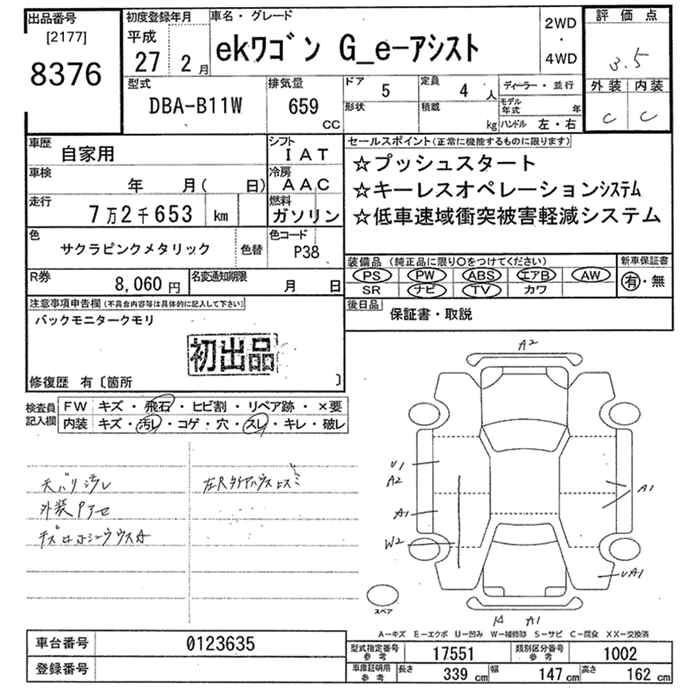 出品番号
[2177]
8376
初度登録年月
平成
27年 2月
車名・グレード
ekワゴン G_e-アシスト
2WD
・
4WD
評価点
3.5
外装 内装
C C
型式
DBA-B11W
排気量
659
CC
ドア 5
形状
定員 4 人
積載 kg
ディーラー・並行
モデル年式 年
ハンドル 左・右
車歴
自家用
シフト
IAT
車検
年 月( 日)
冷房
AAC
走行
7万2千653 km
燃料
ガソリン
色
サクラピンクメタリック
色替
色コード
P38
R券
8,060円
名変通知期限
月 日
セールスポイント(正常に機能するものに限ります)
☆プッシュスタート
☆キーレスオペレーションシステム
☆低車速域衝突被害軽減システム
装備品(純正品に限り○をつけてください)
PS PW ABS エアB AW
SR ナビ TV カワ
新車保証書
有・無
後日品
保証書・取説
注意事項申告欄(不具合内容等は具体的に記入して下さい)
バックモニタークモリ
初出品
修復歴 有〔箇所 〕
検査員記入欄
FW キズ・飛石・ヒビ割・リペア跡・×要
内装 キズ・汚レ・コゲ・穴・スレ・キレ・破レ
天バリ汚レ
外装Pアセ
A2
U1
A2
A1
W2
A1
UA1
A1
スペア
A―キズ E―エクボ U―凹み W―補修跡 S―サビ C―腐食 XX―交換済
車台番号
0123635
登録番号
型式指定番号参考
17551
類別区分番号参考
1002
車庫証明用参考
長さ 339 cm
幅 147 cm
高さ 162 cm